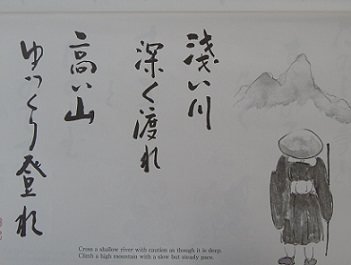 浅い川
深く渡れ
高い山
ゆっくり登れ
Cross a shallow river with caution as though it is deep.
Climb a high mountain with a slow but steady pace.